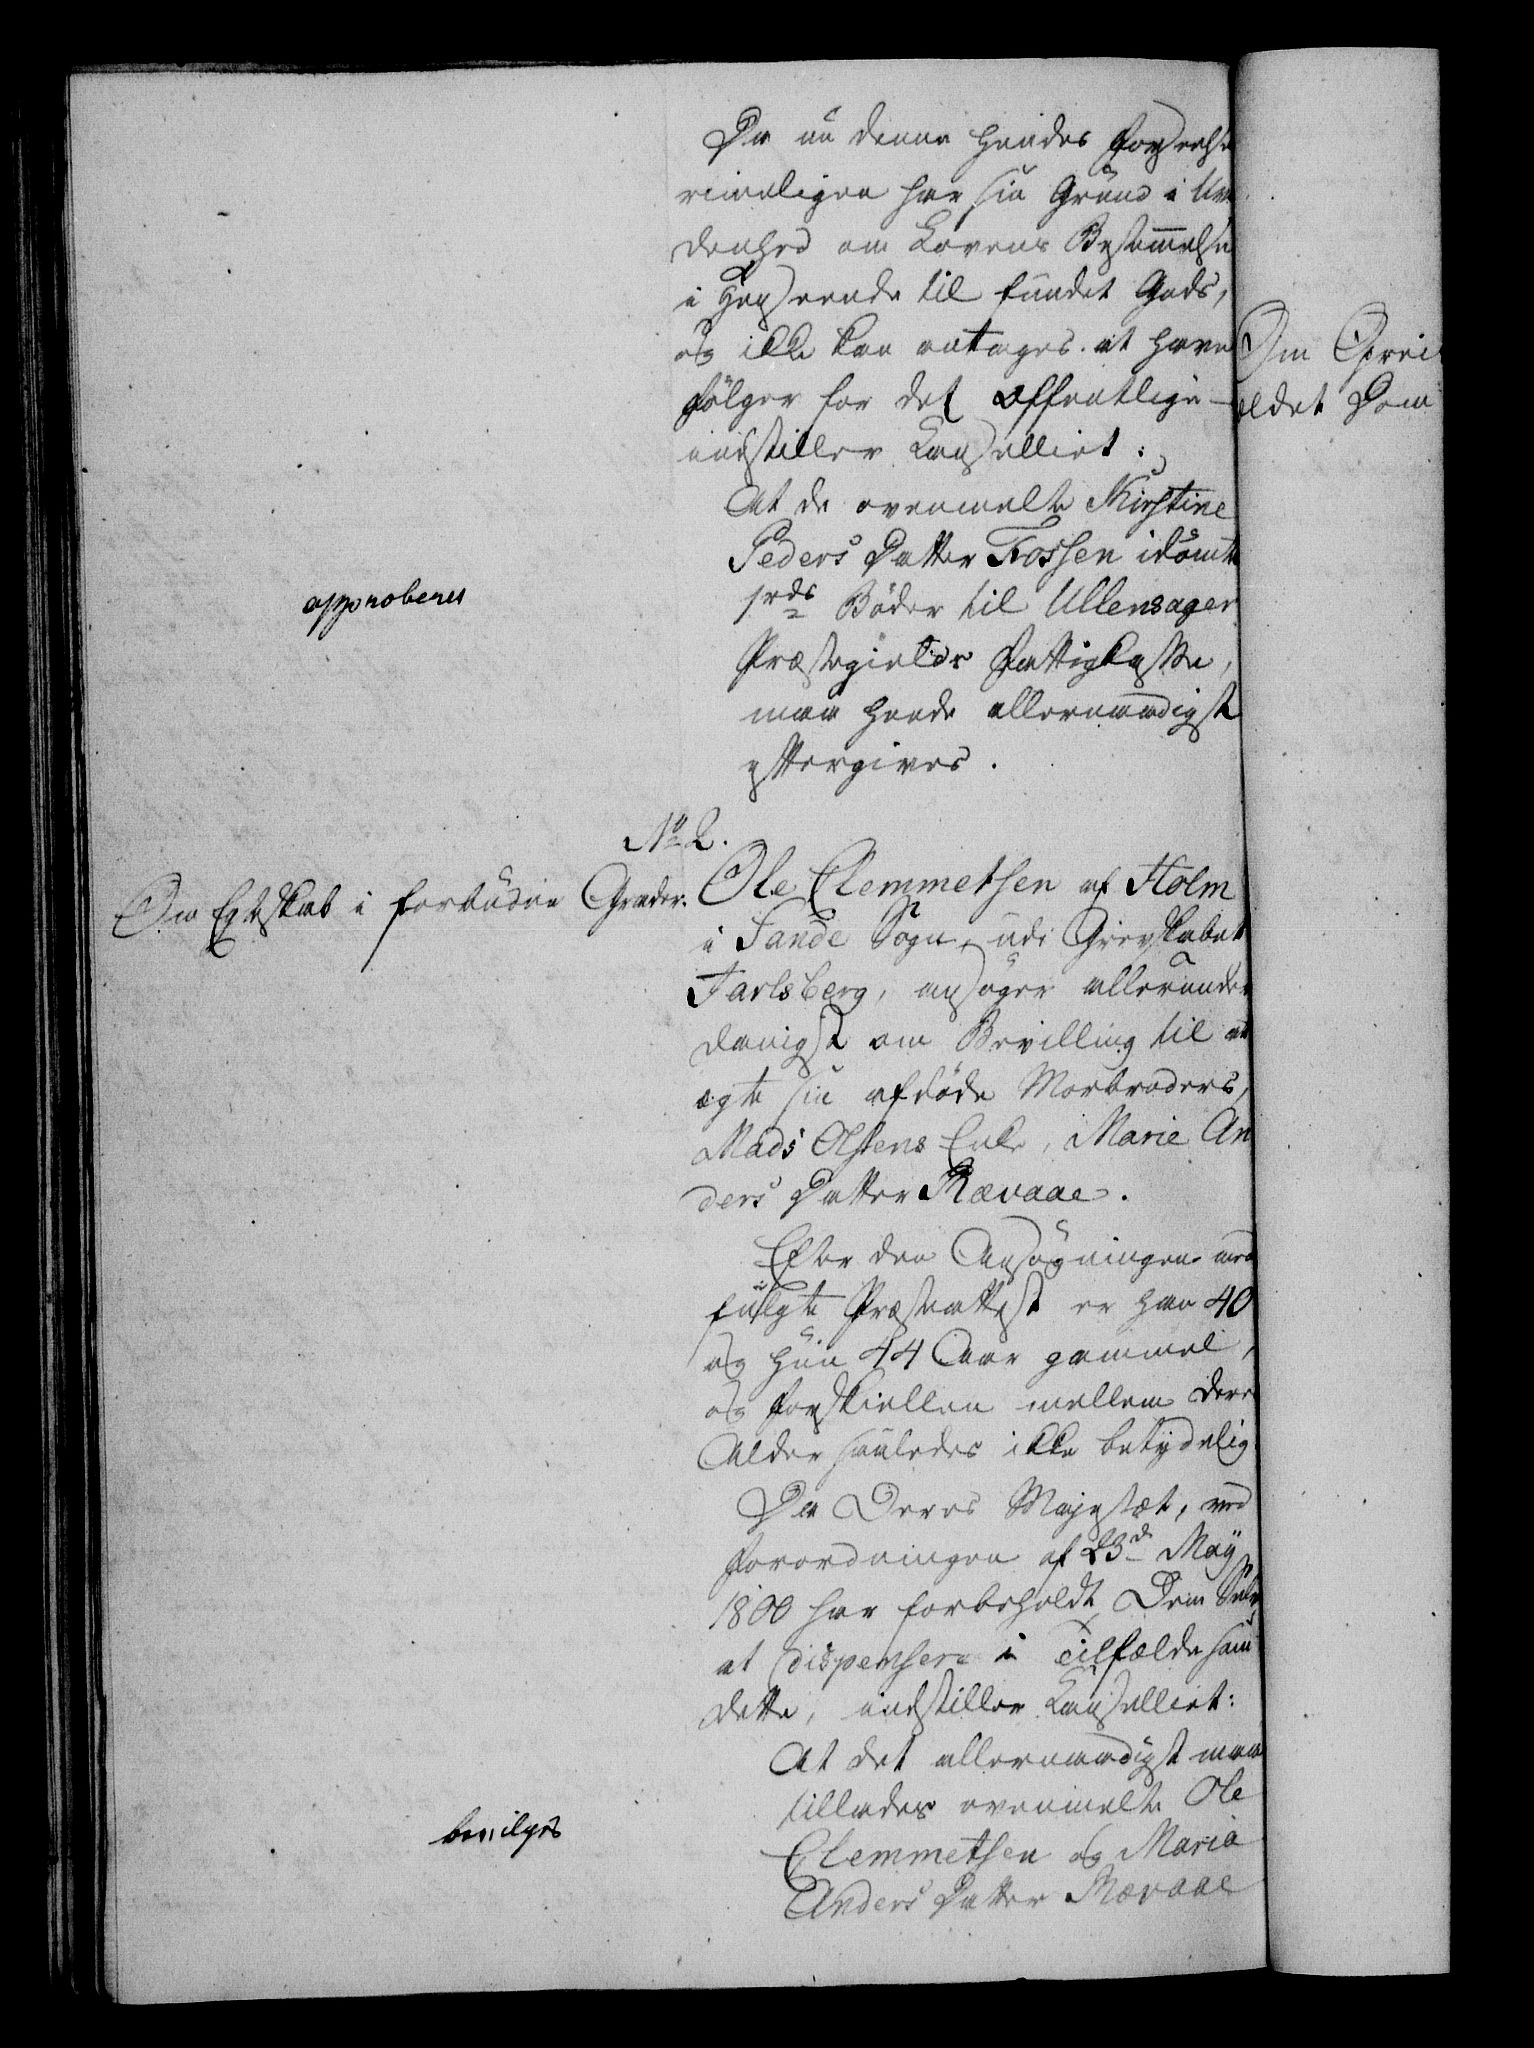 Da nu denne hendes Forseelse
rimeligen har sin Grund i Uvi
denhed om Lovens Bestemmelse
i Henseende til fundet Gods,
og ikke kan antages at have
Følger for det offentlige
indstiller Cancelliet:
At de ovenmelte Kirstine
Peders Datter Fossen idømte
1rds Bøder til Ullensager
Præstegields Fattigkasse,
maa hende allernaadigst
eftergives.
approberes
No 2.
Om Egteskab i forbudne Grader.
Ole Clemmetsen af Holm
i Sande Sogn, udi Grevskabet
Jarlsberg, ansøger allerunder
danigst om Bevilling til at
egte sin afdøde Morbroders,
Mads Olsens Enke, Marie An
ders Datter Rævaae.
Efter den Ansøgningen med
fulgte Præsteattest er han 40
og hun 44 Aar gammel,
og Forskiellen mellem deres
Alder saaledes ikke betydelig.
Da Deres Majestæt, ved
Forordningen af 23de May
1800 har forbeholdt Dem Selv,
at dispensere i Tilfælde som
dette, indstiller Cancelliet:
At det allernaadigst maa
tillades ovenmelte Ole
Clemmetsen og Maria
Anders Datter Rævaae
bevilges
Om Oprei
eldet Dom